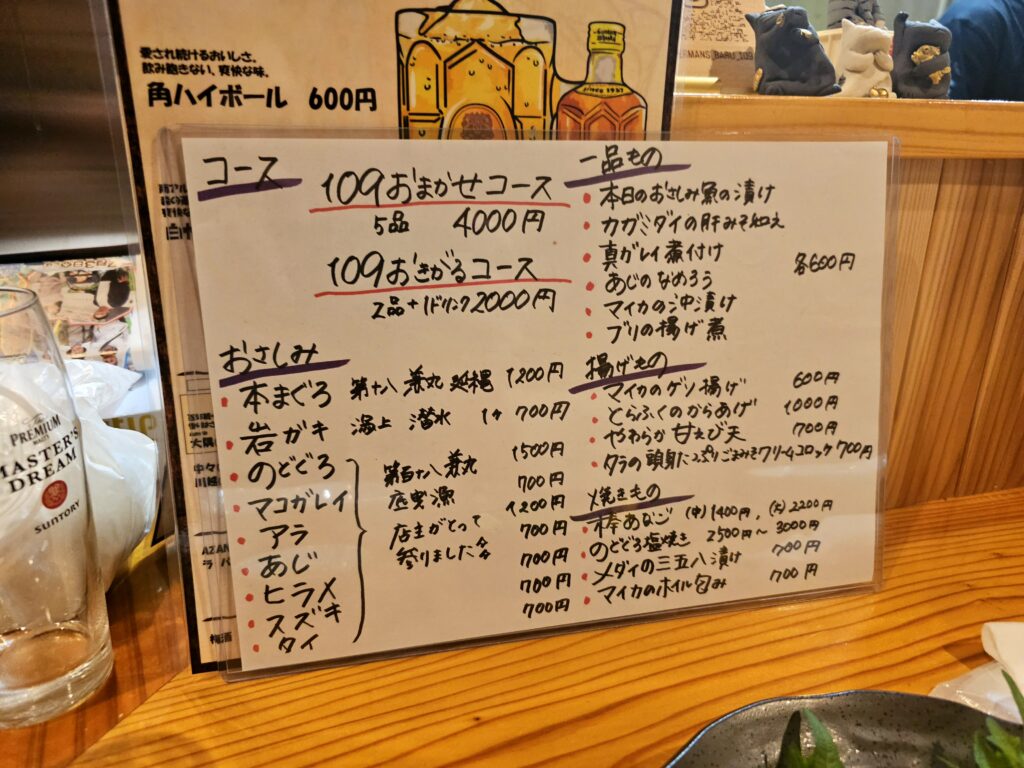 愛され続けるおいしさ。
飲み飽きない、爽快な味。
角ハイボール 600円
コース
109おまかせコース
5品 4000円
109おきがるコース
2品+1ドリンク2000円
おさしみ
・本まぐろ 第十八 兼丸 延縄 1200円
・岩ガキ 潜水 1ヶ 700円
・のどぐろ 1500円
・マコガレイ 700円
・アラ 1200円
・あじ 700円
・ヒラメ 700円
・スズキ 700円
・タイ 700円
兼丸
店主がとって
参りました
一品もの
・本日のおさしみ魚の漬け
・カガミダイの肝みそ和え
・真ガレイ煮付け
・あじのなめろう
・マイカの沖漬け
・ブリの揚げ煮
各600円
揚げもの
・マイカのゲソ揚げ 600円
・とらふぐのからあげ 1000円
・やわらか甘えび天 700円
・タラの頭身たっぷりごまみそクリームコロッケ 700円
焼きもの
・棒あなご (中)1400円, (大)2200円
・のどぐろ塩焼き 2500円〜3000円
・メダイの三五八漬け 700円
・マイカのホイル包み 700円
The
PREMIUM
MASTER'S
DREAM
SUNTORY
since 1937